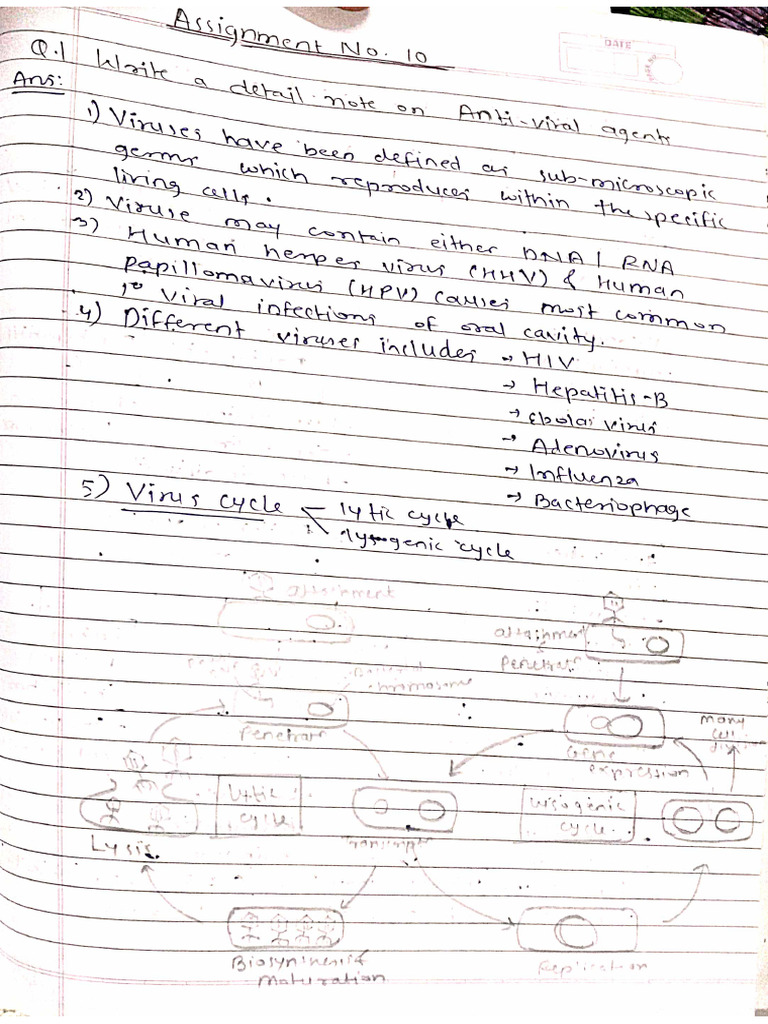 Assignment No. 10
DATE
Q.1 Write a detail note on Anti-viral agents
Ans:
1) Viruses have been defined as sub-microscopic
germs which reproduces within the specific
living cells.
2) Viruse may contain either DNA / RNA
3) Human herpes virus (HHV) & Human
Papillomavirus (HPV) causes most common
1° viral infections of oral cavity.
4) Different viruses includes → HIV
→ Hepatitis-B
→ Ebolai virus
→ Adenovirus
→ Influenza
→ Bacteriophage
5) Virus cycle
lytic cycle
lysogenic cycle
assignment
assignment
Penetrats
chromosome
Penetrats
Many
cell
Gene
expression
Lytic
cycle
Lysogenic
cycle
Lysis
Biosynthesis &
maturation
Replication